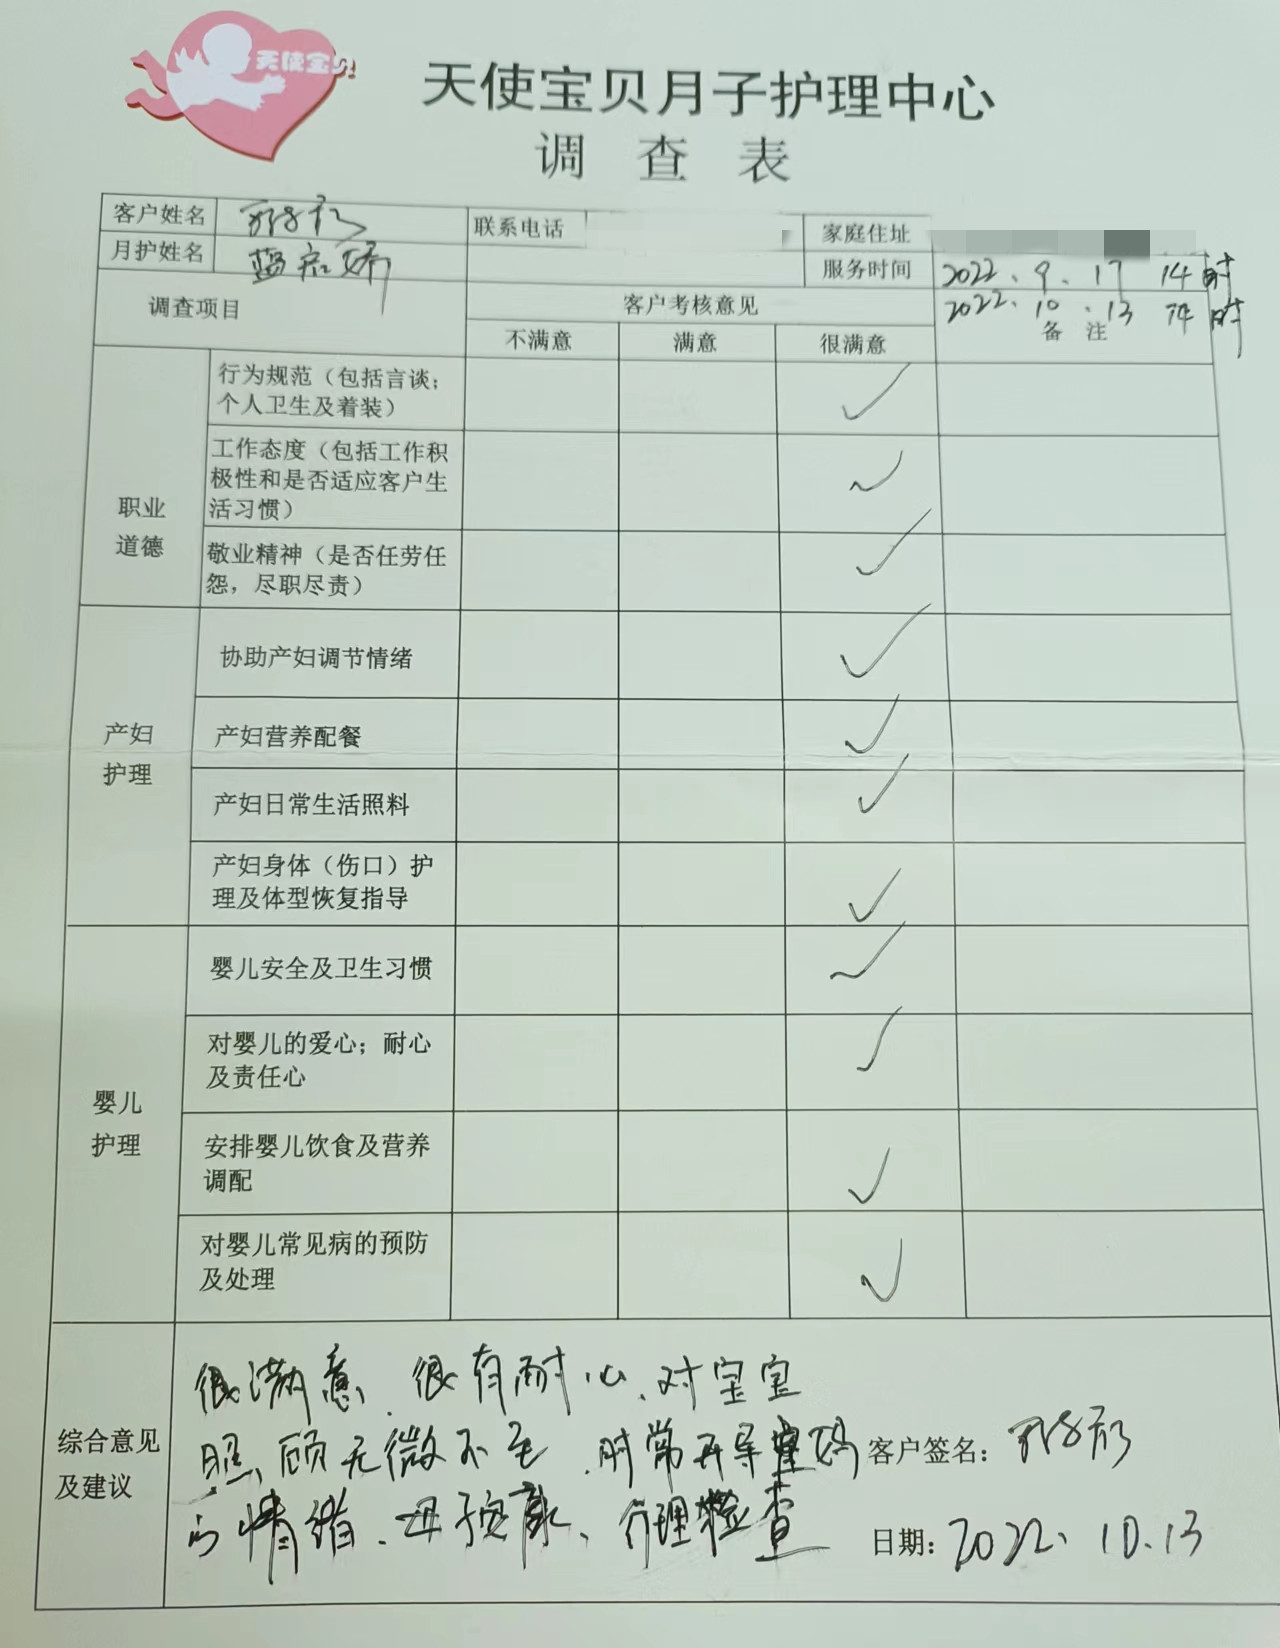 天使宝贝
天使宝贝月子护理中心
调查表
客户姓名
联系电话
家庭住址
月护姓名 蓝启娇
服务时间 2022.9.17 14时
2022.10.13 14时
调查项目 客户考核意见 备注
不满意 满意 很满意
职业
道德
行为规范（包括言谈；
个人卫生及着装）
✓
工作态度（包括工作积
极性和是否适应客户生
活习惯）
✓
敬业精神（是否任劳任
怨，尽职尽责）
✓
产妇
护理
协助产妇调节情绪 ✓
产妇营养配餐 ✓
产妇日常生活照料 ✓
产妇身体（伤口）护
理及体型恢复指导
✓
婴儿
护理
婴儿安全及卫生习惯 ✓
对婴儿的爱心；耐心
及责任心
✓
安排婴儿饮食及营养
调配
✓
对婴儿常见病的预防
及处理
✓
综合意见
及建议
很满意、很有耐心、对宝宝
照顾无微不至、时常开导宝妈
的情绪、母子健康、
客户签名：
日期：2022.10.13